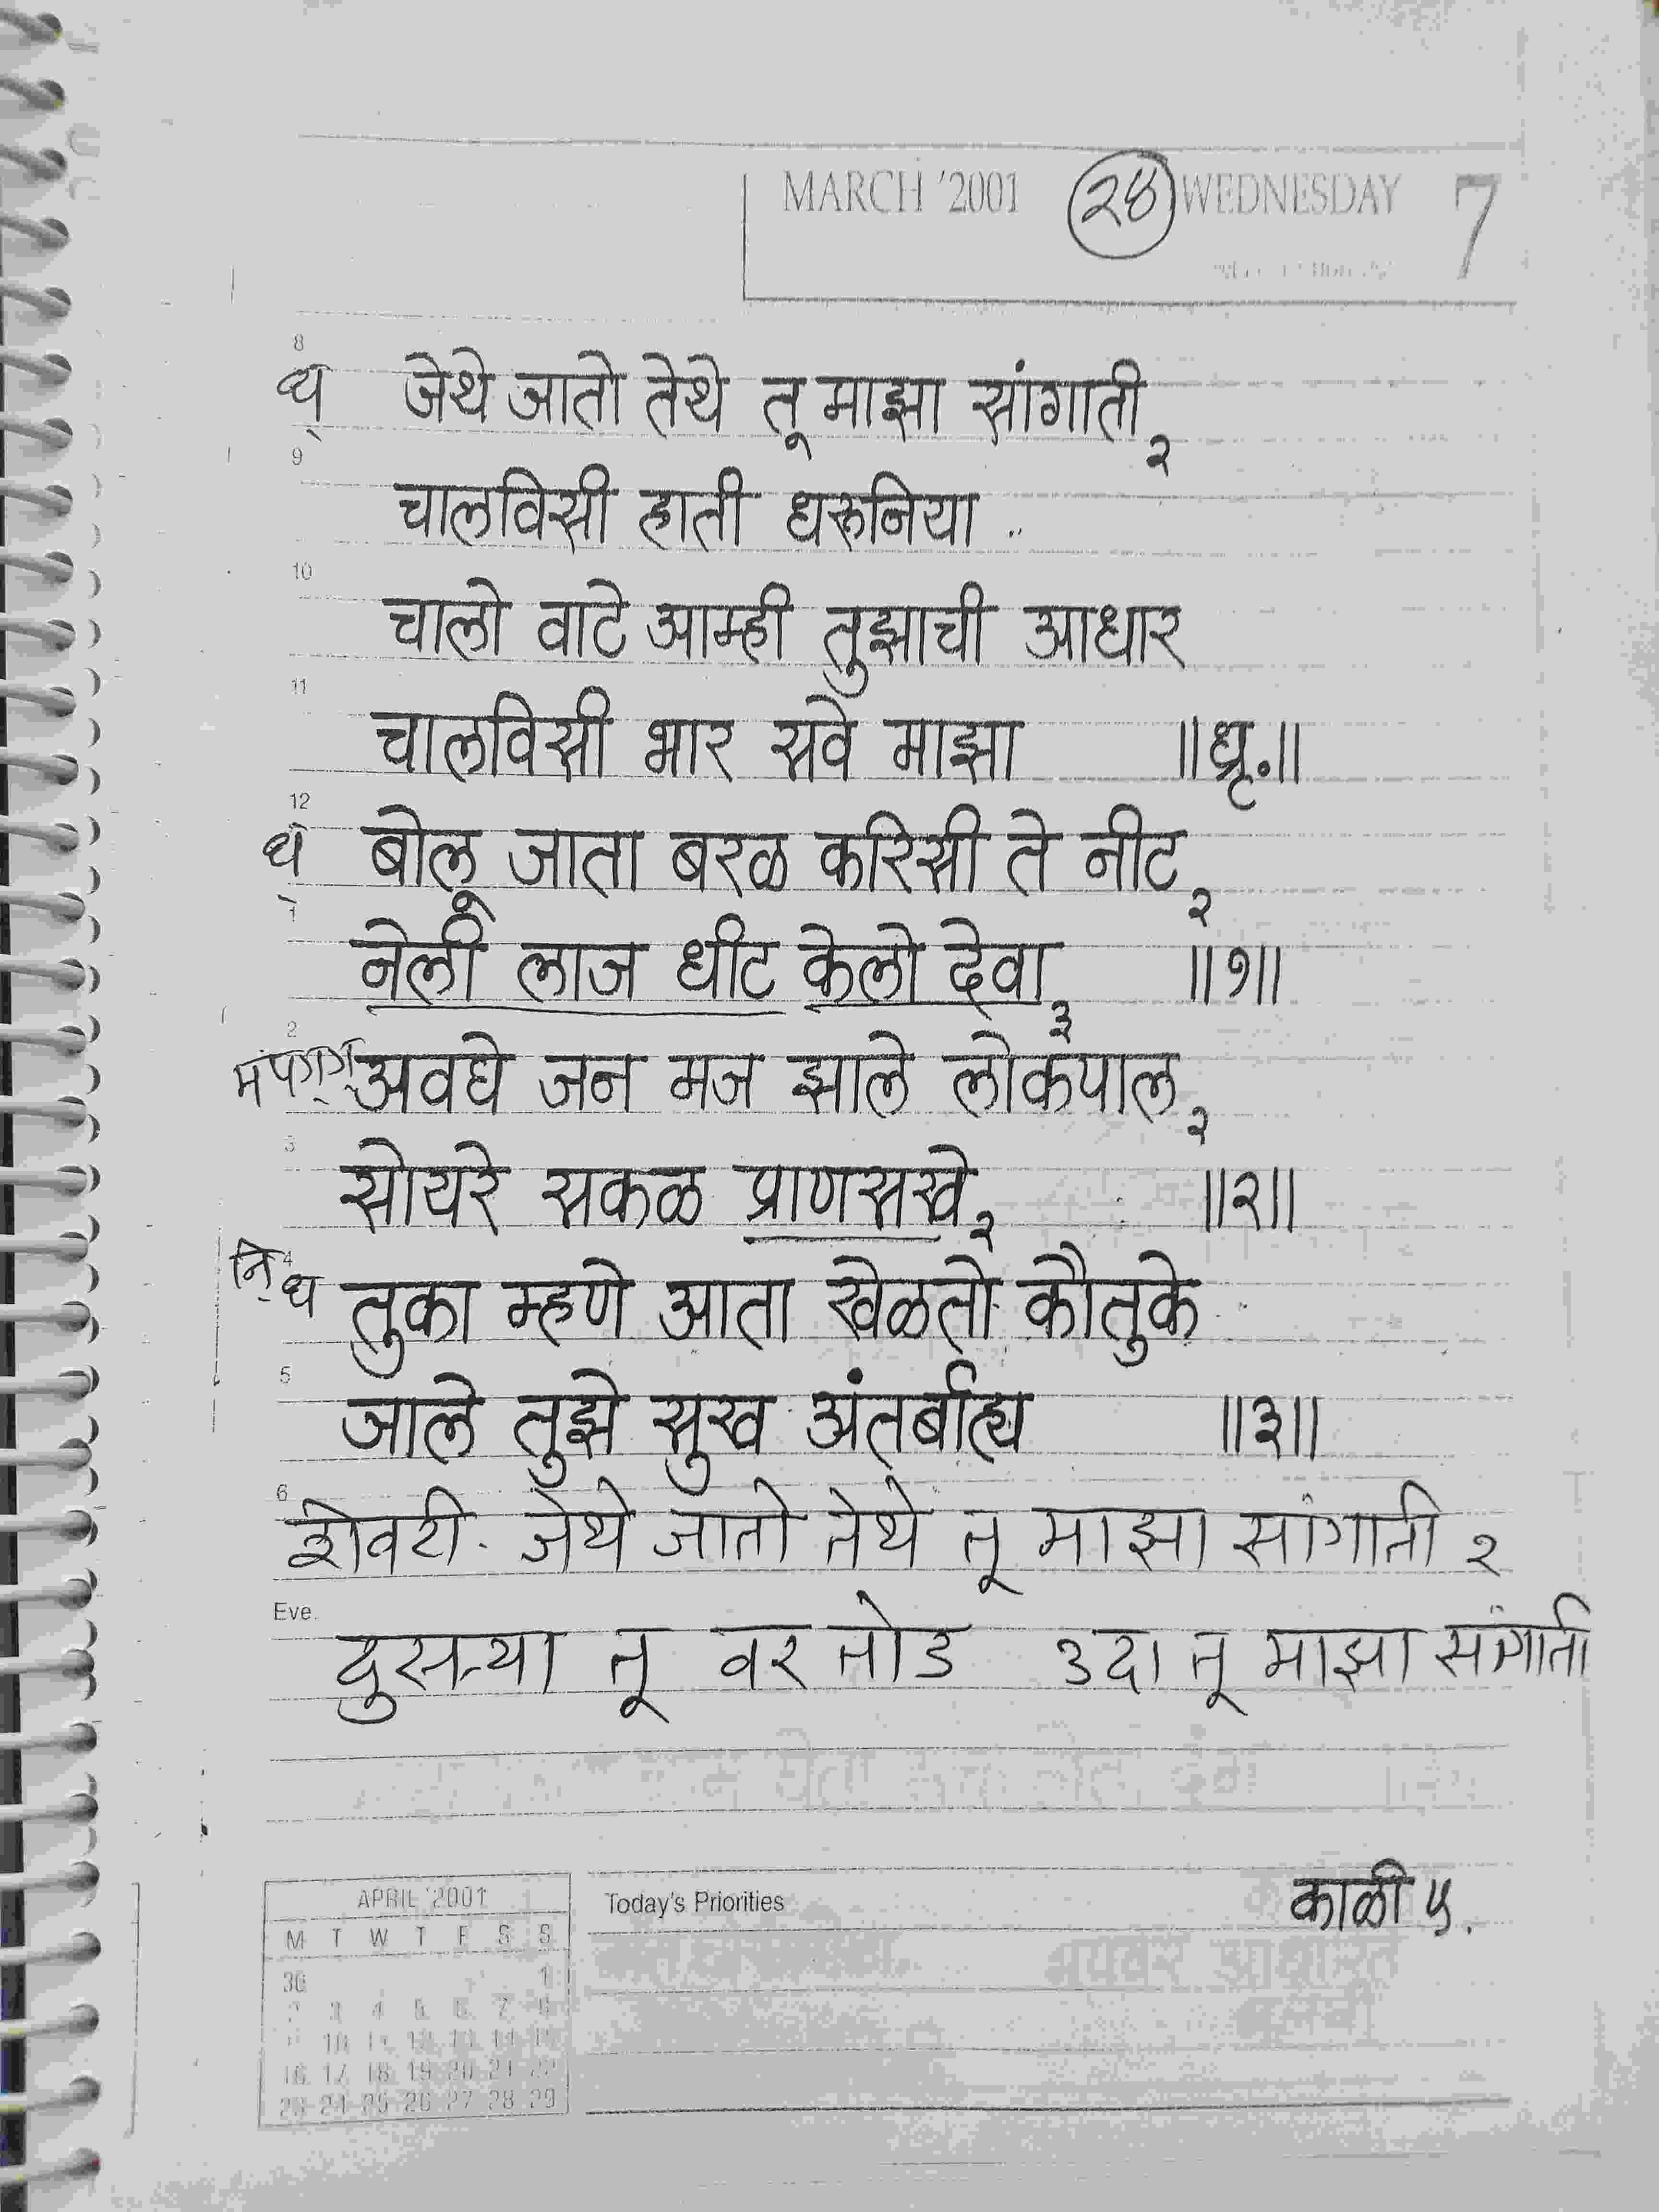 MARCH '2001 २४ WEDNESDAY 7
8
ध़ जेथे जातो तेथे तू माझा सांगाती २
9
चालविसी हाती धरुनिया
10
चालो वाटे आम्ही तुझाची आधार
11
चालविसी भार सवे माझा ॥ध्रृ.॥
12
ध़ बोलू जाता बरळ करिसी ते नीट २
1
नेली लाज धीट केलो देवा ३ ॥१॥
2
अवघे जन मज झाले लोकपाल २
3
सोयरे सकळ प्राणसखे २ ॥२॥
4
नि ध तुका म्हणे आता खेळतो कौतुके
5
जाले तुझे सुख अंतर्बाह्य ॥३॥
6
शेवटी. जेथे जातो तेथे तू माझा सांगाती २
Eve.
दुसऱ्या तू वर तोड ३दा तू माझा सांगाती
काळी ५.
APRIL '2001
Today's Priorities
M T W T F S S
30 1
2 3 4 5 6 7 8
16 17 18 19 20 21 22
23 24 25 26 27 28 29